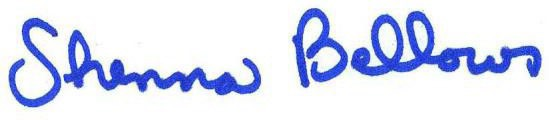 Shenna Bellows